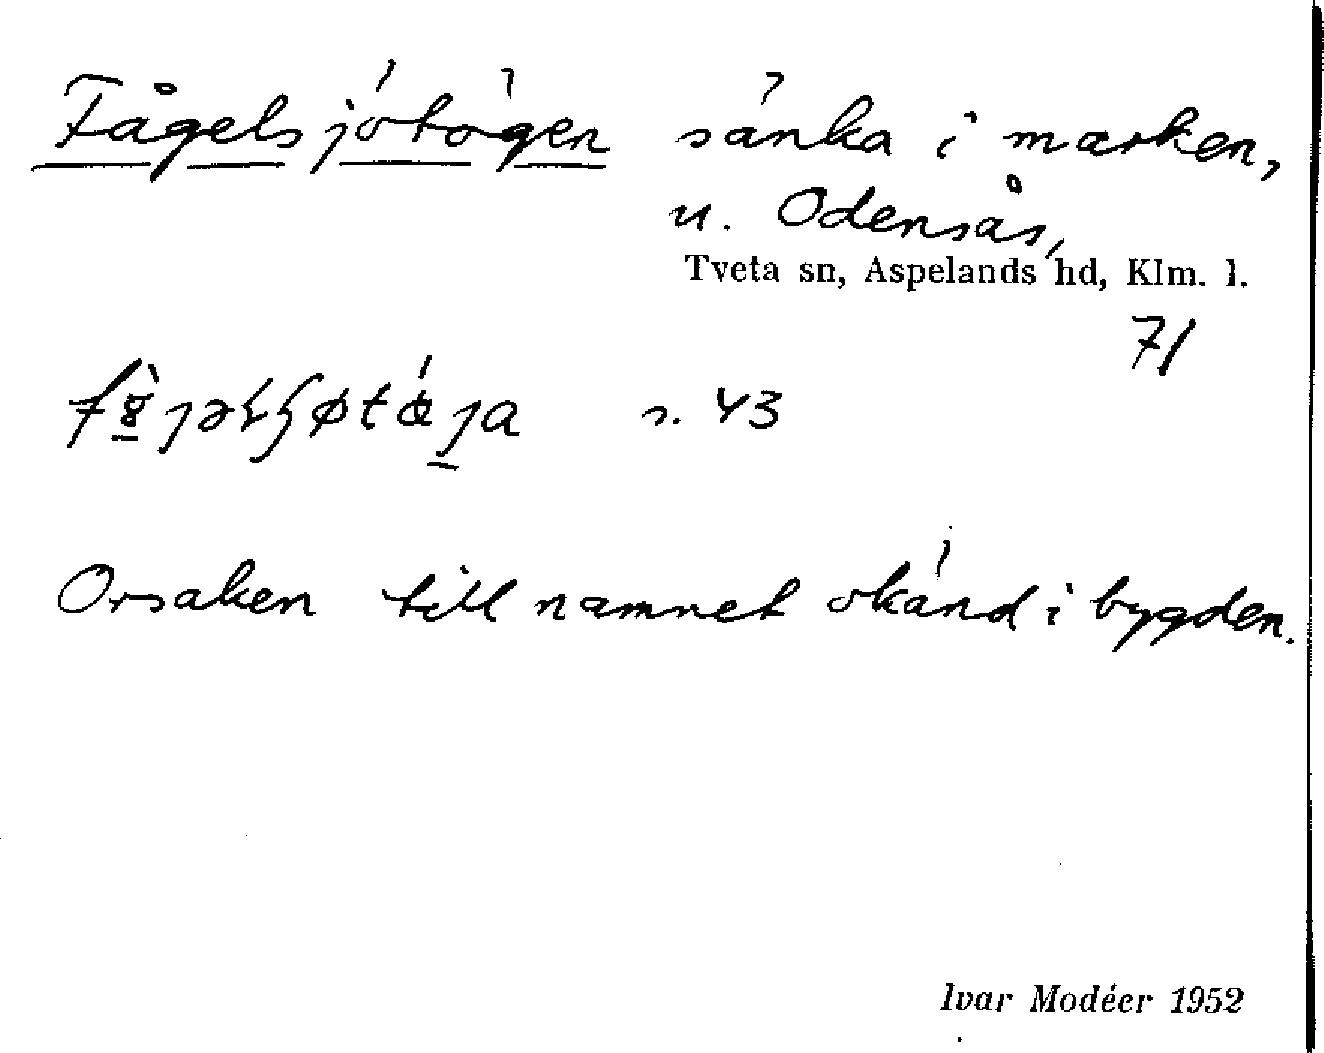 Fågelsjötögen sänka i marken,
u. Odensås,
Tveta sn, Aspelands hd, Klm. l.
71
s. 43
Orsaken till namnet okänd i bygden.
Ivar Modéer 1952